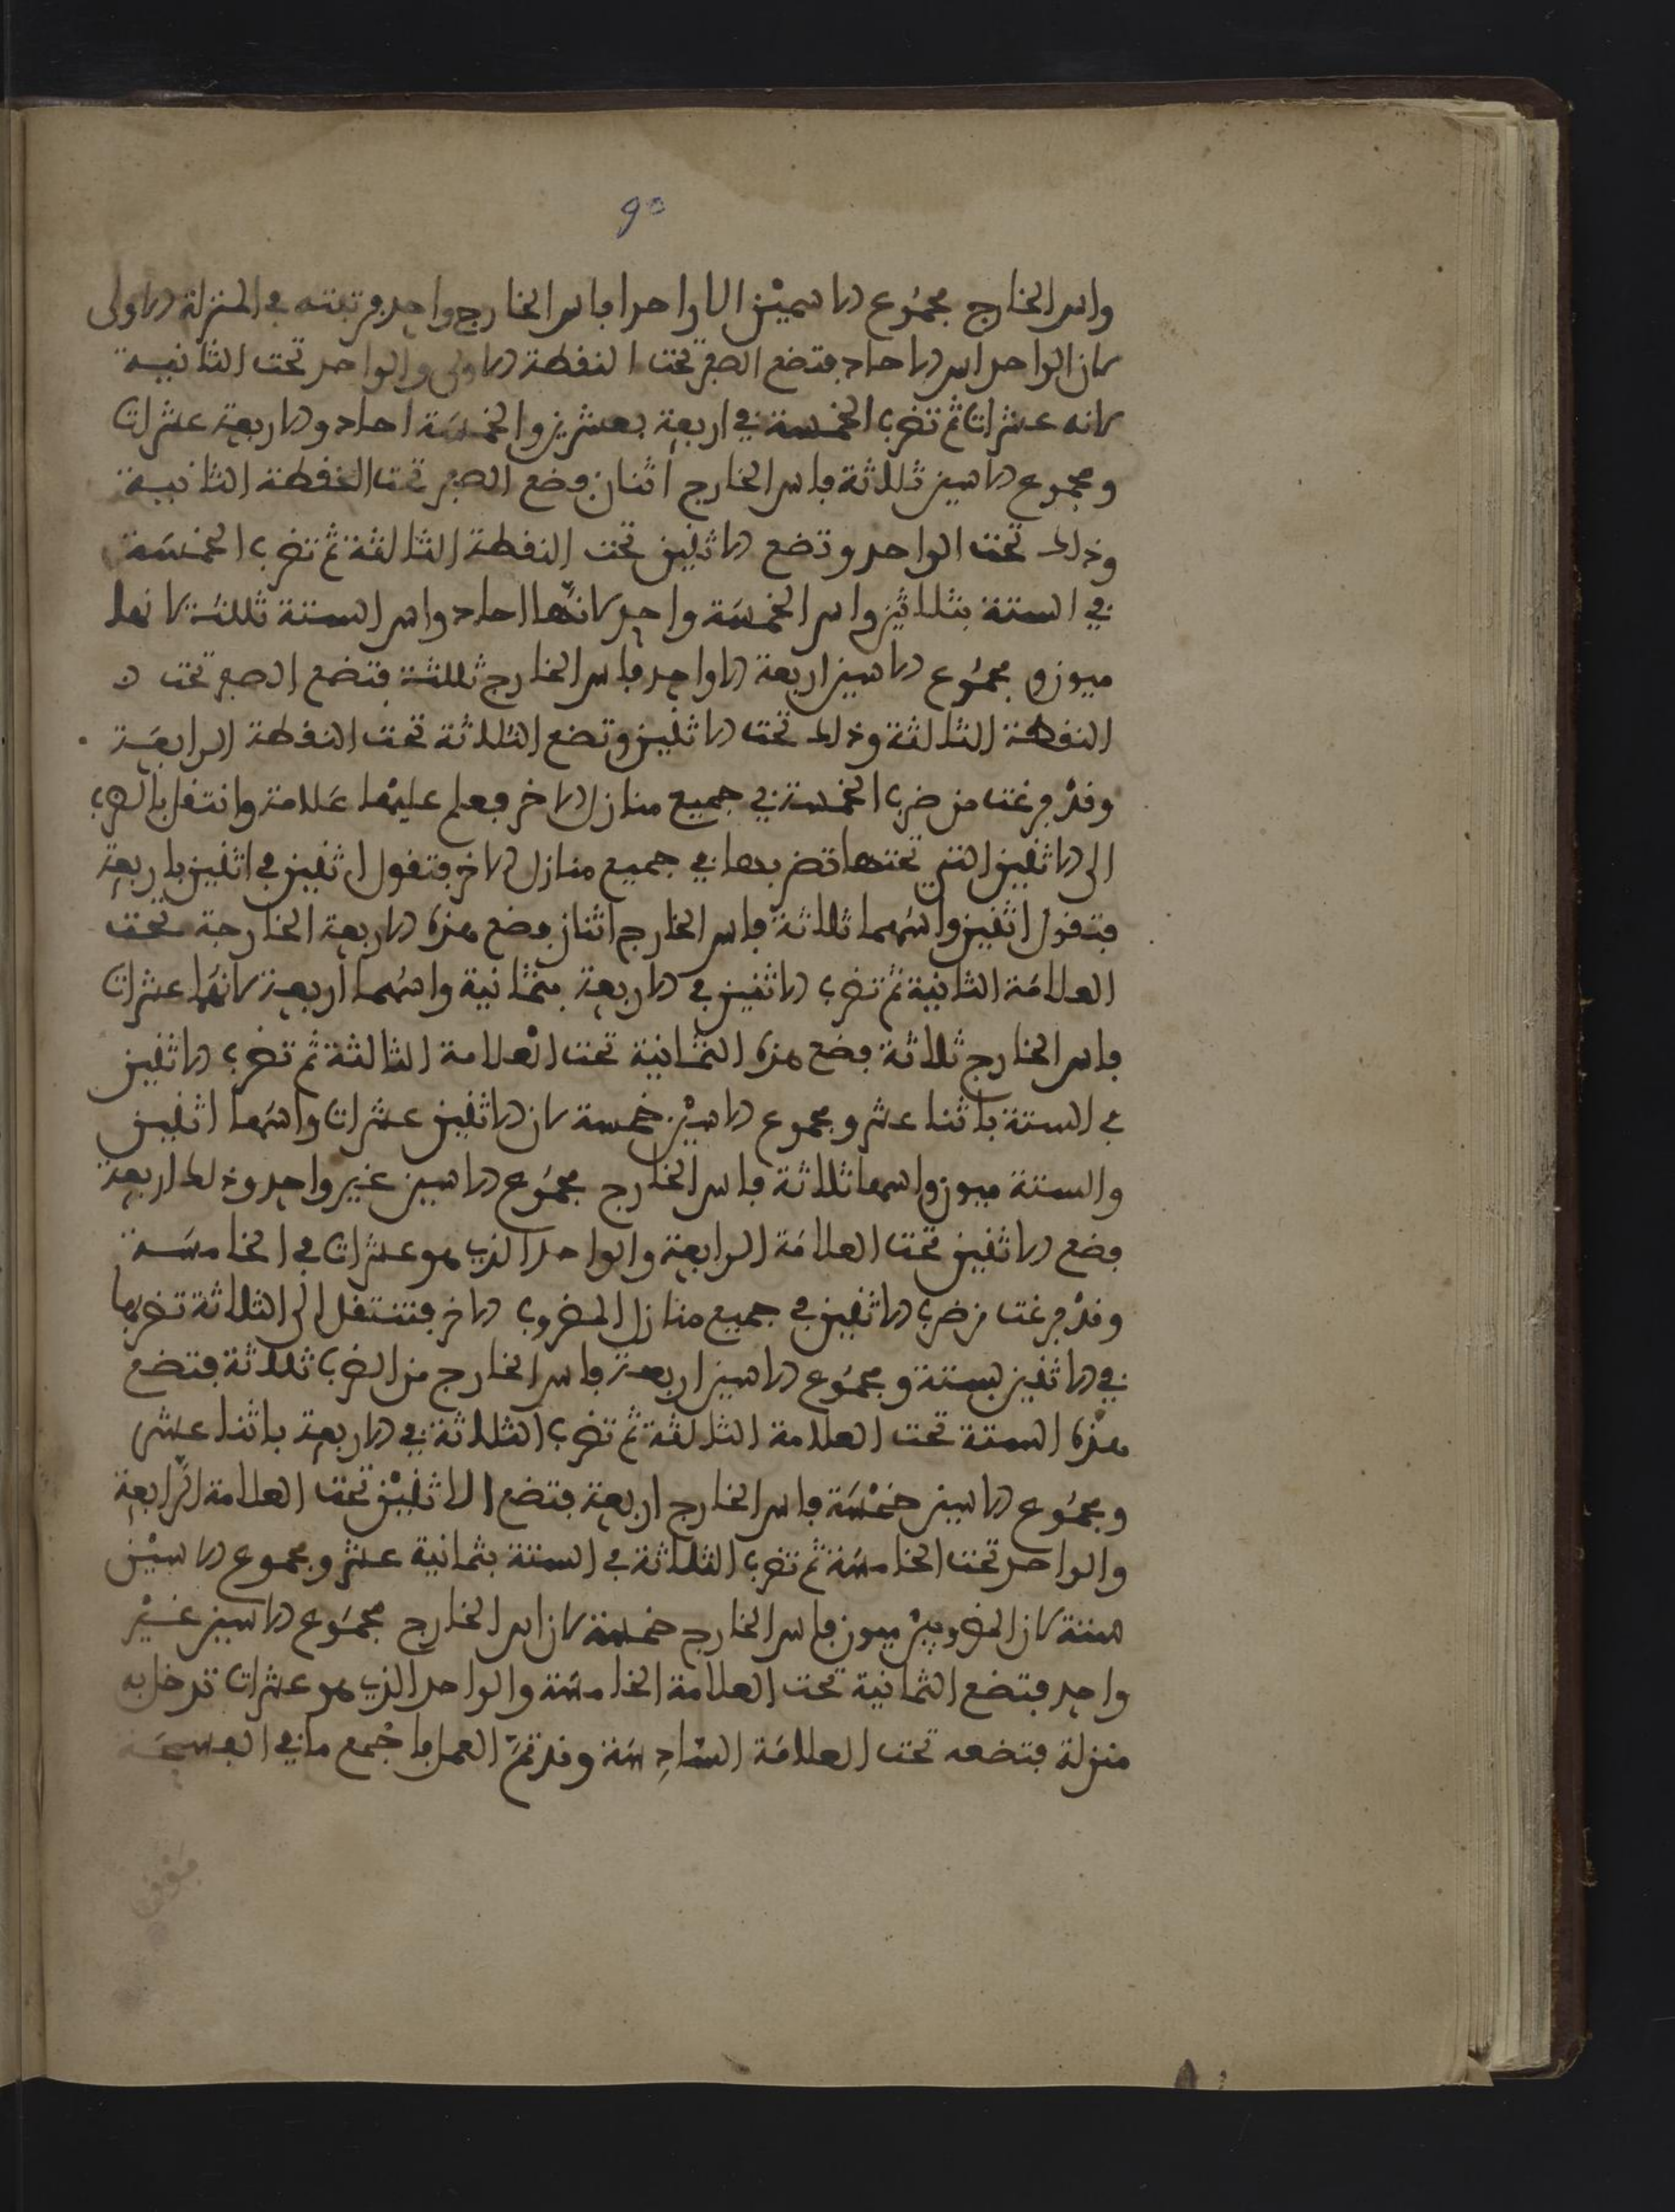 90
واس الخارج مجموع الاسمين الا واحدا فاس الخارج واحد فرتبته في المنزلة الاولى
لان الواحد اس الاحاد فتضع الصفر تحت النقطة الاولى والواحد تحت الثانية
لانه عشرات ثم تضرب الخمسة في اربعة بعشرين والخمسة احاد والاربعة عشرات
ومجموع الاسين ثلاثة فاس الخارج اثنان فضع الصفر تحت النقطة الثانية
وذلك تحت الواحد وتضع الاثنين تحت النقطة الثالثة ثم تضرب الخمسة
في الستة بثلاثين واس الخمسة واحد لانها احاد واس الستة ثلثة لانها
ميون ومجموع الاسين اربعة الا واحد فاس الخارج ثلثة فتضع الصفر تحت
النقطة الثالثة وذلك تحت الاثنين وتضع الثلاثة تحت النقطة الرابعة
وقد فرغت من ضرب الخمسة في جميع منازل الاخر فعلم عليها علامة وانتقل بالضرب
الى الاثنين التي تحتها تضربها في جميع منازل الاخر فتقول اثنين في اثنين باربعة
فتقول اثنين واسهما ثلاثة فاس الخارج اثنان فضع هذه الاربعة الخارجة تحت
العلامة الثانية ثم تضرب الاثنين في الاربعة بثمانية واسهما اربعة لانهما عشرات
فاس الخارج ثلاثة فضع هذه الثمانية تحت العلامة الثالثة ثم تضرب الاثنين
في الستة باثنا عشر ومجموع الاسين خمسة لان الاثنين عشرات واسها اثنين
والستة ميون واسها ثلاثة فاس الخارج مجموع الاسين غير واحد وذلك اربعة
فضع الاثنين تحت العلامة الرابعة والواحد الذي هو عشرات في الخامسة
وقد فرغت من ضرب الاثنين في جميع منازل المضروب الاخر فتنتقل الى الثلاثة تضربها
في الاثنين بستة ومجموع الاسين اربعة فاس الخارج من الضرب ثلاثة فتضع
هذه الستة تحت العلامة الثالثة ثم تضرب الثلاثة في الاربعة باثنا عشر
ومجموع الاسين خمسة فاس الخارج اربعة فتضع الاثنين تحت العلامة الرابعة
والواحد تحت الخامسة ثم تضرب الثلاثة في الستة بثمانية عشر ومجموع الاسين
ستة لان المضروبين ميون فاس الخارج خمسة لان اس الخارج مجموع الاسين غير
واحد فتضع الثمانية تحت العلامة الخامسة والواحد الذي هو عشرات تدخل به
منزلة فتضعه تحت العلامة السادسة وقد تم العمل فاجمع ما في الفسحة